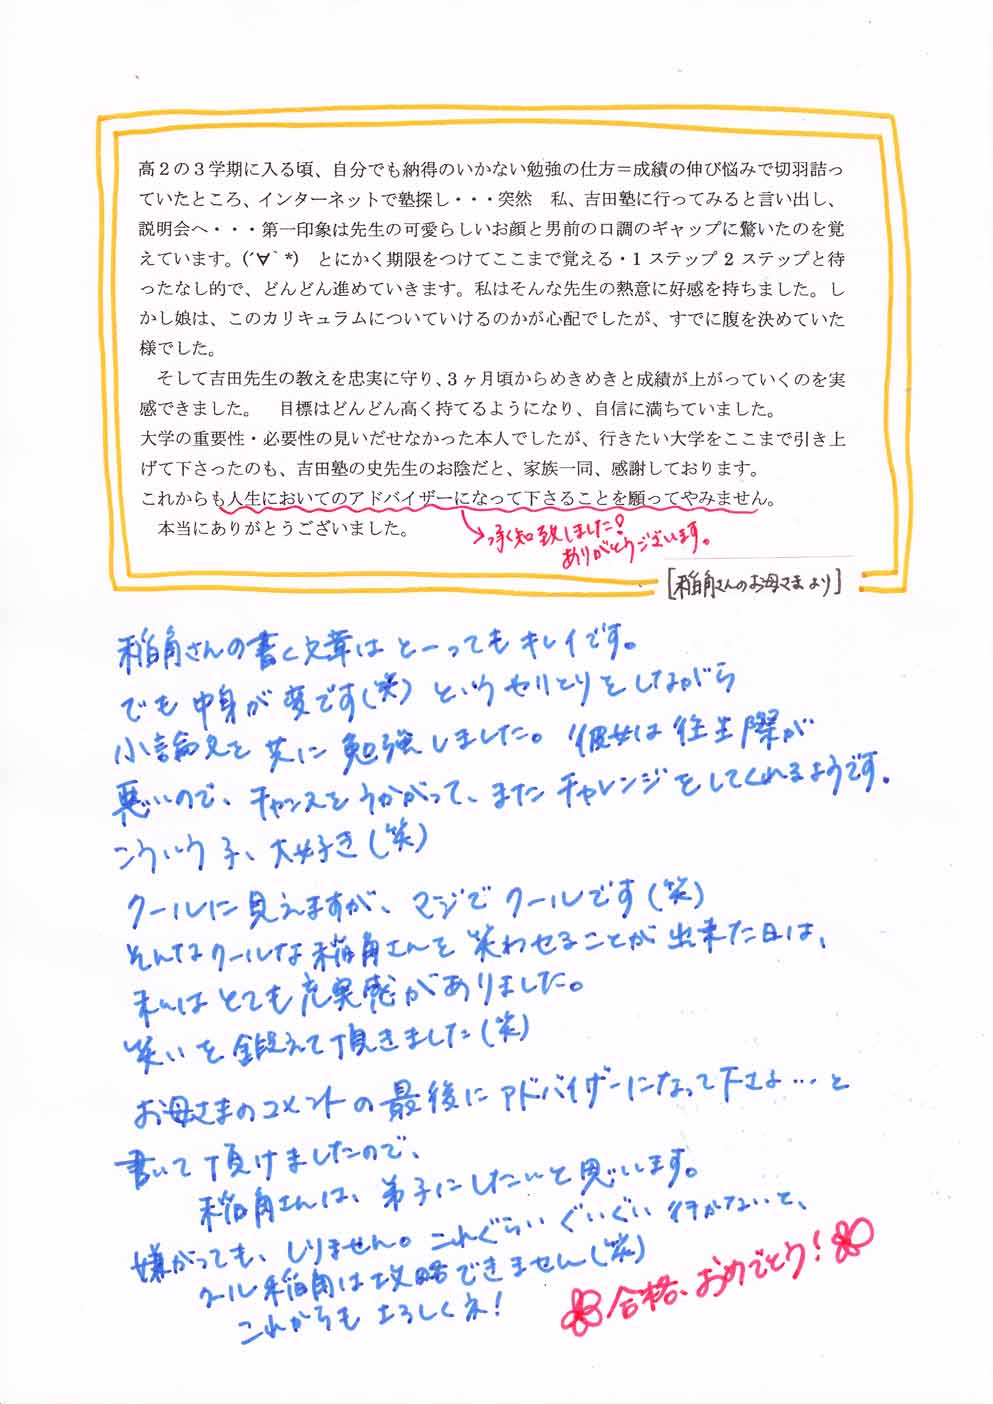 高２の３学期に入る頃、自分でも納得のいかない勉強の仕方＝成績の伸び悩みで切羽詰っ
ていたところ、インターネットで塾探し・・・突然　私、吉田塾に行ってみると言い出し、
説明会へ・・・第一印象は先生の可愛らしいお顔と男前の口調のギャップに驚いたのを覚
えています。(´∀｀*)　とにかく期限をつけてここまで覚える・1 ステップ 2 ステップと待
ったなし的で、どんどん進めていきます。私はそんな先生の熱意に好感を持ちました。し
かし娘は、このカリキュラムについていけるのかが心配でしたが、すでに腹を決めていた
様でした。
　そして吉田先生の教えを忠実に守り、３ヶ月頃からめきめきと成績が上がっていくのを実
感できました。　目標はどんどん高く持てるようになり、自信に満ちていました。
大学の重要性・必要性の見いだせなかった本人でしたが、行きたい大学をここまで引き上
げて下さったのも、吉田塾の史先生のお陰だと、家族一同、感謝しております。
これからも人生においてのアドバイザーになって下さることを願ってやみません。
　本当にありがとうございました。
→承知致しました！
ありがとうございます。
[稲角さんのお母さまより]
稲角さんの書く文章はとーってもキレイです。
でも中身が変です(笑) というやりとりをしながら
小論文を共に勉強しました。彼女は往生際が
悪いので、チャンスをうかがって、またチャレンジをしてくれるようです。
こういう子、大好き(笑)
クールに見えますが、マジでクールです(笑)
そんなクールな稲角さんを笑わせることが出来た日は、
私はとても充実感がありました。
笑いを鍛えて頂きました(笑)
お母さまのコメントの最後にアドバイザーになって下さよ…と
書いて頂けましたので、
稲角さんは、弟子にしたいと思います。
嫌がっても、しりません。これぐらいぐいぐい行かないと、
クール稲角は攻略できません(笑)
これからもよろしくネ！
合格、おめでとう！